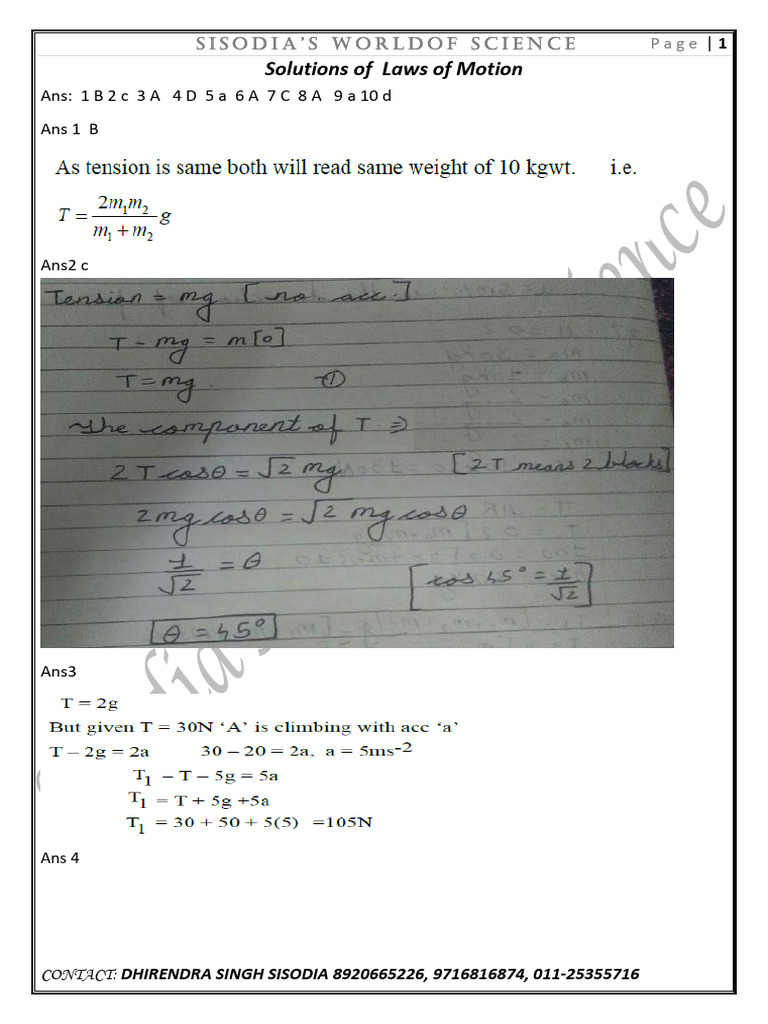 SISODIA'S WORLDOF SCIENCE Page | 1
Solutions of Laws of Motion
Ans: 1 B 2 c 3 A 4 D 5 a 6 A 7 C 8 A 9 a 10 d
Ans 1 B
As tension is same both will read same weight of 10 kgwt. i.e.
T = 2m₁m₂ / m₁ + m₂ g
Ans2 c
Tension = mg [no. acc.]
T - mg = m[0]
T = mg. ①
The component of T ⇒
2 T cosθ = √2 mg [2T means 2 blocks]
2mg cosθ = √2 mg cosθ
1/√2 = θ [cos 45° = 1/√2]
θ = 45°
Ans3
T = 2g
But given T = 30N ‘A’ is climbing with acc ‘a’
T – 2g = 2a 30 – 20 = 2a, a = 5ms-2
T1 – T – 5g = 5a
T1 = T + 5g +5a
T1 = 30 + 50 + 5(5) =105N
Ans 4
CONTACT: DHIRENDRA SINGH SISODIA 8920665226, 9716816874, 011-25355716